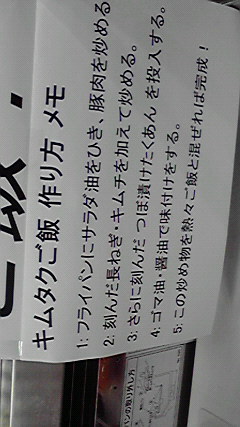 キムタクご飯 作り方 メモ
1: フライパンにサラダ油をひき、豚肉を炒める
2: 刻んだ長ねぎ・キムチを加えて炒める。
3: さらに刻んだ つぼ漬けたくあん を投入する。
4: ゴマ油・醤油で味付けをする。
5: この炒め物を熱々ご飯と混ぜれば完成！
パンの取り外し方